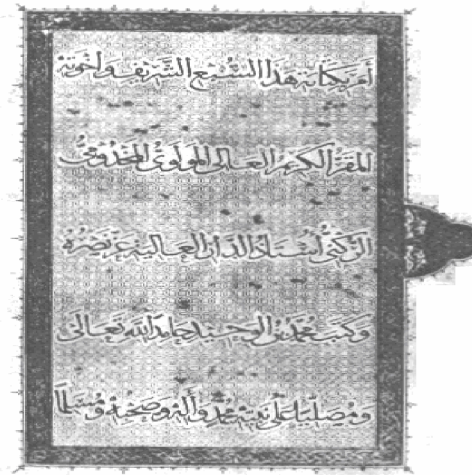 أمر بكتابة هذا السبع الشريف وأخوته
المقر الكريم العالي المولوي المخدومي
الركني أستاذ الدار العالية عز نصره
وكتب محمد بن الوحيد حامدا لله تعالى
ومصليا على نبيه محمد وآله وصحبه ومسلما